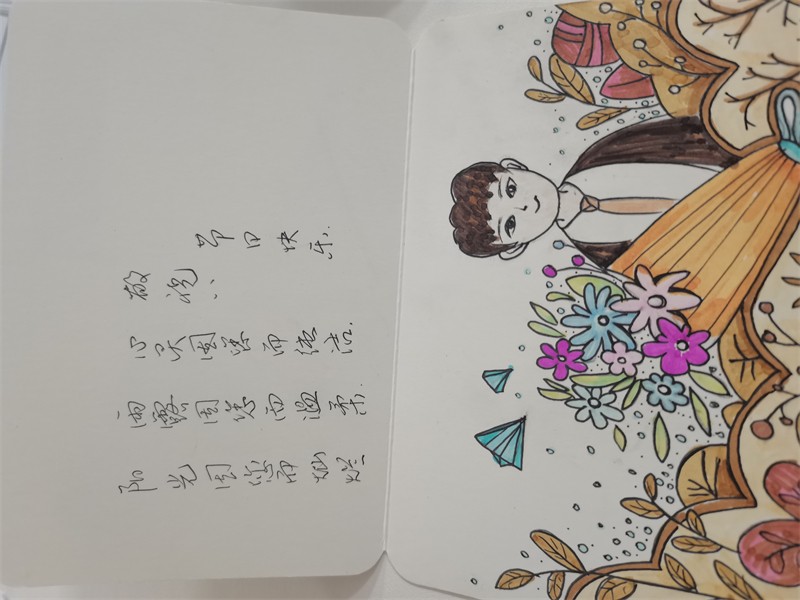 阳光因您而灿烂
雨露因您而温柔.
心灵因您而纯洁.
敬祝:
节日快乐.